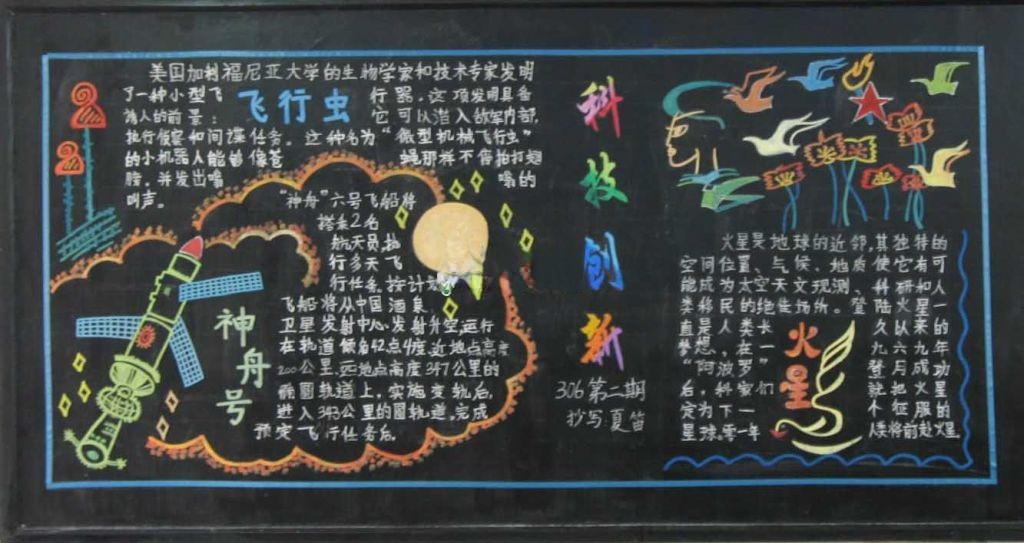 美国加利福尼亚大学的生物学家和技术专家发明
了一种小型飞行器。这项发明具备
诱人的前景：它可以潜入敌军内部，
执行侦察和间谍任务。这种名为“微型机械飞行虫”
的小机器人能够像苍蝇那样不停拍打翅
膀，并发出嗡嗡的
叫声。
飞行虫
“神舟”六号飞船将
搭乘2名
航天员，执
行多天飞
行任务。按计划
飞船将从中国酒泉
卫星发射中心发射升空，运行
在轨道倾角42点4度，近地点高度
200公里，远地点高度347公里的
椭圆轨道上，实施变轨后，
进入343公里的圆轨道。完成
预定飞行任务后。
神舟号
科技创新
306第二期
抄写：夏笛
火星是地球的近邻，其独特的
空间位置、气候、地质使它有可
能成为太空天文观测、科研和人
类移民的绝佳场所。登陆火星一
直是人类长久以来的
梦想，在一九六九年
“阿波罗”登月成功
后，科家们就把火星
定为下一个征服的
星球。零一年人类将前赴火星。
火星